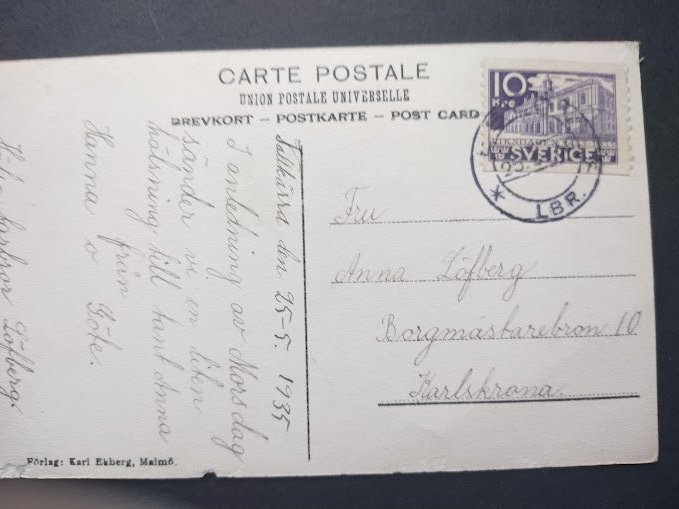 CARTE POSTALE
UNION POSTALE UNIVERSELLE
BREVKORT – POSTKARTE – POST CARD
10
öre
RIKSDAGEN
SVERIGE
LBR.
den 25-5. 1935
I anledning av Mors dag
sänder vi en liten
hälsning till tant Anna
från
Hanna o Göte.
farbror Löfberg.
Fru
Anna Löfberg
Borgmästarebron 10
Karlskrona.
Förlag: Karl Ekberg, Malmö.